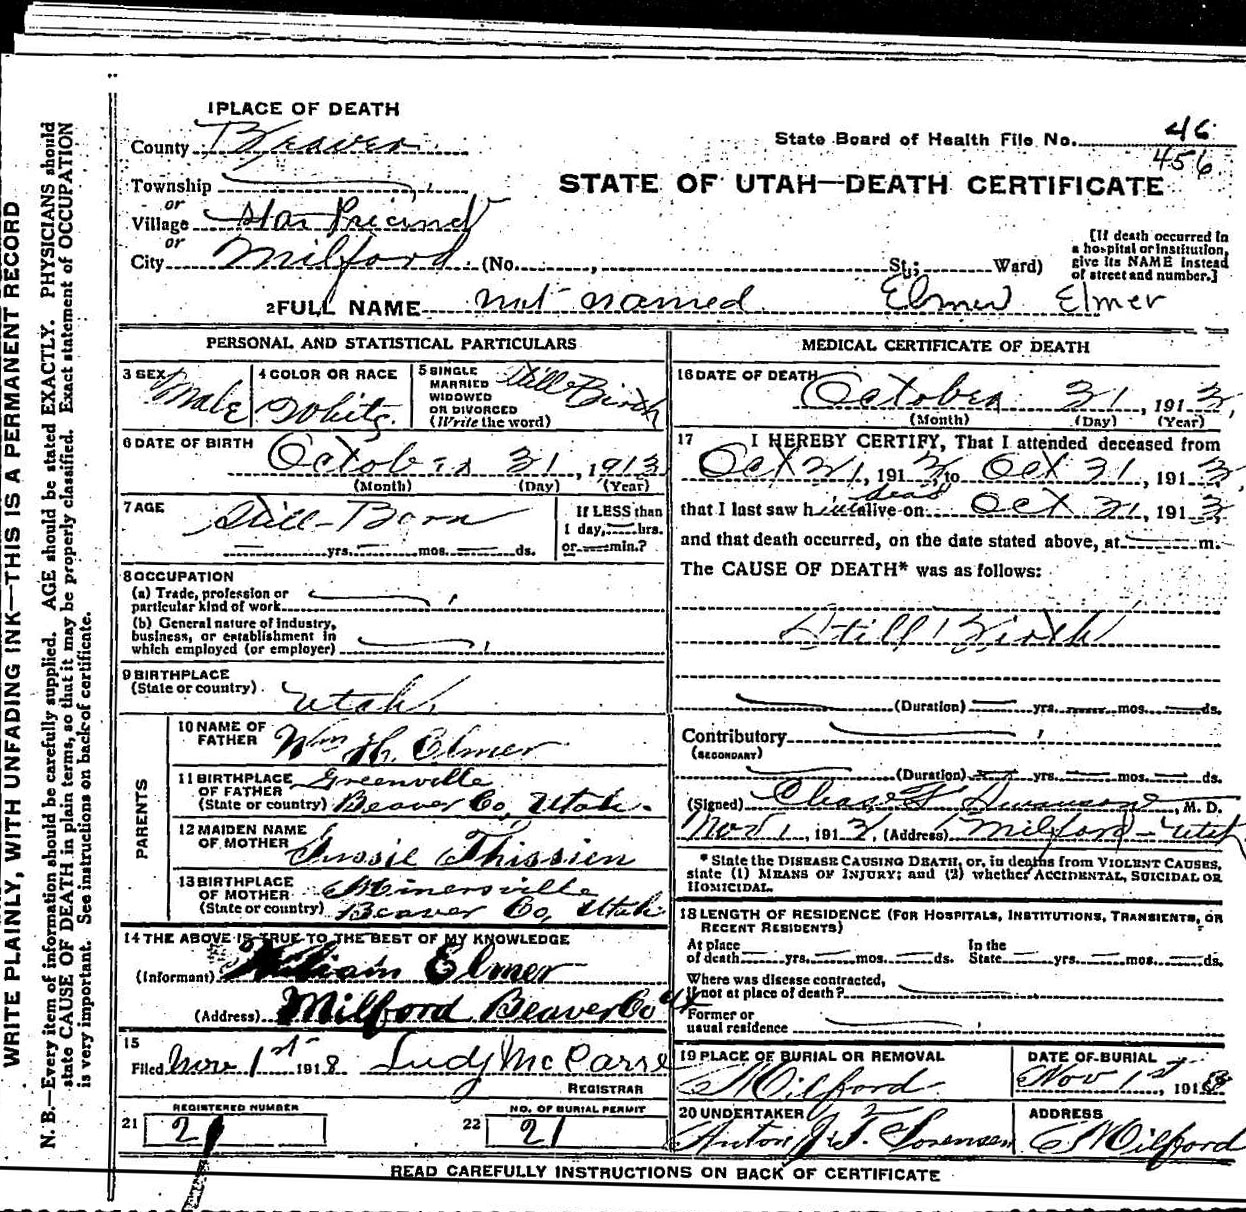 1 PLACE OF DEATH
County Beaver
State Board of Health File No. 46
456
Township
or
Village Star Precinct
or
City Milford (No. , St.; Ward)
STATE OF UTAH—DEATH CERTIFICATE
[If death occurred in
a hospital or institution,
give its NAME instead
of street and number.]
2 FULL NAME not named Elmer Elmer
PERSONAL AND STATISTICAL PARTICULARS
3 SEX Male
4 COLOR OR RACE White
5 SINGLE
MARRIED
WIDOWED
OR DIVORCED
(Write the word)
Still Birth
6 DATE OF BIRTH
October 31, 1913
(Month) (Day) (Year)
7 AGE
Still-Born
yrs. mos. ds.
If LESS than
1 day, hrs.
or min.?
8 OCCUPATION
(a) Trade, profession or
particular kind of work
(b) General nature of industry,
business, or establishment in
which employed (or employer)
9 BIRTHPLACE
(State or country)
Utah
PARENTS
10 NAME OF
FATHER
Wm H. Elmer
11 BIRTHPLACE
OF FATHER
(State or country)
Greenville
Beaver Co, Utah.
12 MAIDEN NAME
OF MOTHER
Thissien
13 BIRTHPLACE
OF MOTHER
(State or country)
Minersville
Beaver Co, Utah
14 THE ABOVE IS TRUE TO THE BEST OF MY KNOWLEDGE
(Informant) William Elmer
(Address) Milford Beaver Co
15
Filed Nov 1st 1918
REGISTRAR
REGISTERED NUMBER
21 21
NO. OF BURIAL PERMIT
22 21
MEDICAL CERTIFICATE OF DEATH
16 DATE OF DEATH
October 31, 1913,
(Month) (Day) (Year)
17 I HEREBY CERTIFY, That I attended deceased from
Oct 31, 1913, to Oct 31, 1913,
dead
that I last saw him alive on Oct 31, 1913,
and that death occurred, on the date stated above, at m.
The CAUSE OF DEATH* was as follows:
Still Birth
(Duration) yrs. mos. ds.
Contributory
(SECONDARY)
(Duration) yrs. mos. ds.
(Signed) Chas , M. D.
Nov 1, 1913, (Address) Milford-Utah
* State the DISEASE CAUSING DEATH, or, in deaths from VIOLENT CAUSES,
state (1) MEANS OF INJURY; and (2) whether ACCIDENTAL, SUICIDAL OR
HOMICIDAL.
18 LENGTH OF RESIDENCE (FOR HOSPITALS, INSTITUTIONS, TRANSIENTS, OR
RECENT RESIDENTS)
At place
of death yrs. mos. ds.
In the
State yrs. mos. ds.
Where was disease contracted,
if not at place of death?
Former or
usual residence
19 PLACE OF BURIAL OR REMOVAL
Milford
DATE OF BURIAL
Nov 1st, 191
20 UNDERTAKER
Anton Sorensen
ADDRESS
Milford
READ CAREFULLY INSTRUCTIONS ON BACK OF CERTIFICATE
WRITE PLAINLY, WITH UNFADING INK—THIS IS A PERMANENT RECORD
N. B.—Every item of information should be carefully supplied. AGE should be stated EXACTLY. PHYSICIANS should
state CAUSE OF DEATH in plain terms, so that it may be properly classified. Exact statement of OCCUPATION
is very important. See instructions on back of certificate.